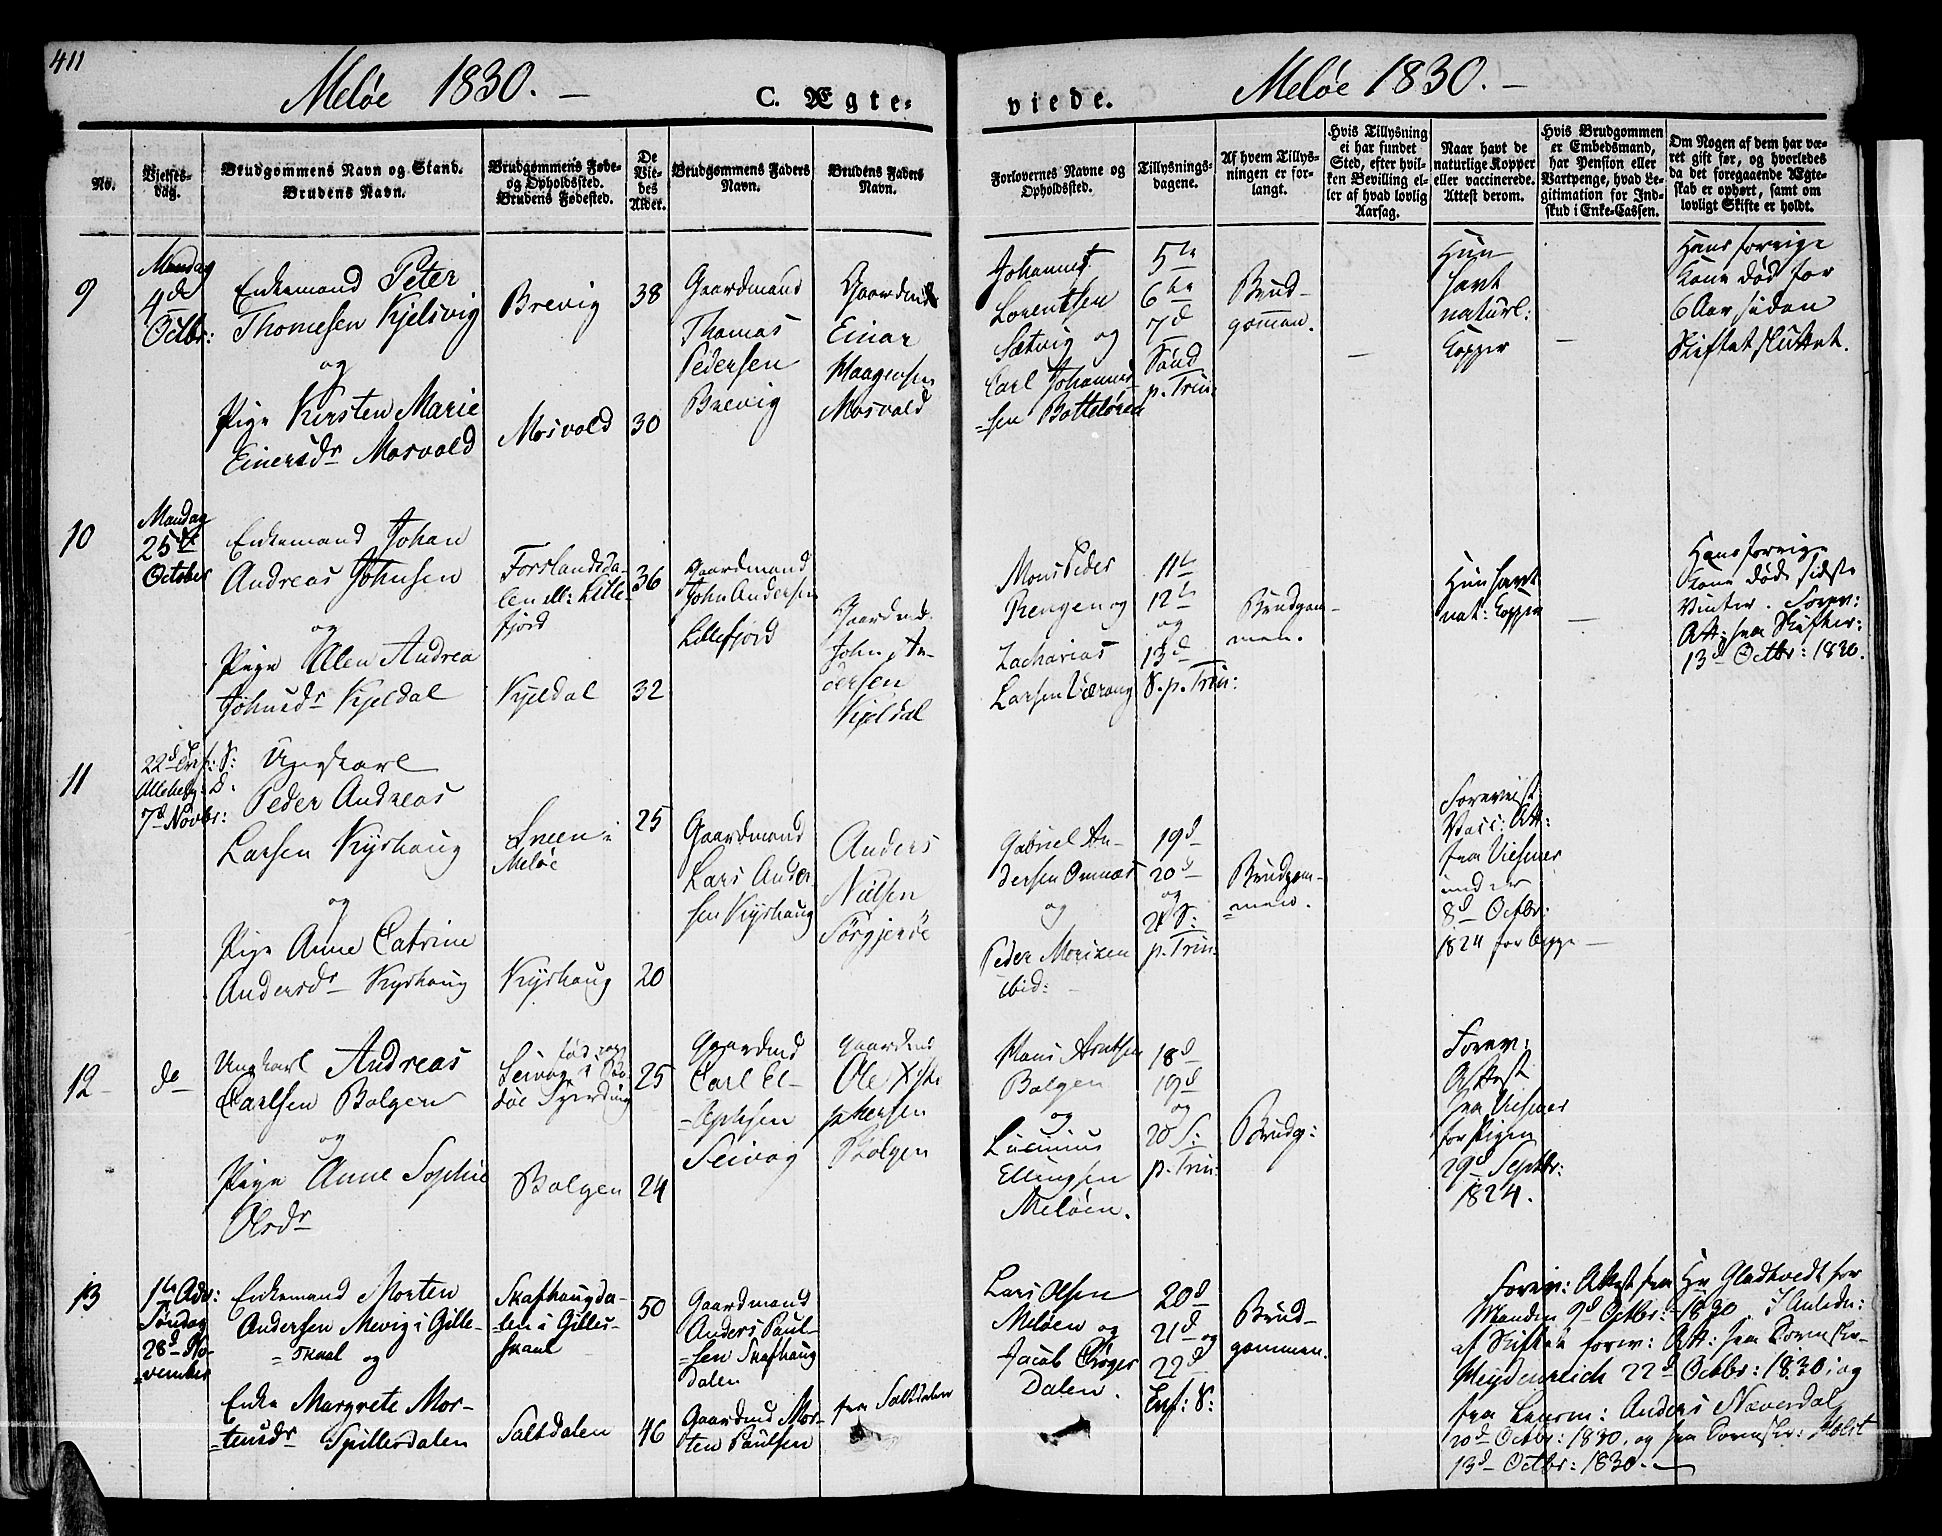 411
Meløe 1830. –
C. Ægte-
viede.
Meløe 1830. –
No.
Vielses-
dag.
Brudgommens Navn og Stand.
Brudens Navn.
Brudgommens Føde-
og Opholdssted.
Brudens Fødested.
De
Vie-
des
Alder.
Brudgommens Faders
Navn.
Brudens Faders
Navn.
Forlovernes Navne og
Opholdssted.
Tillysnings-
dagene.
Af hvem Tillys-
ningen er for-
langt.
Hvis Tillysning
ei har fundet
Sted, efter hvil-
ken Bevilling el-
ler af hvad lovlig
Aarsag.
Naar havt de
naturlige Kopper
eller vaccinerede.
Attest derom.
Hvis Brudgommen
er Embedsmand,
har Pension eller
Vartpenge, hvad Le-
gitimation for Ind-
skud i Enke-Cassen.
Om Nogen af dem har væ-
ret gift før, og hvorledes
da det foregaaende Ægte-
skab er ophørt, samt om
lovligt Skifte er holdt.
9
Mandag
4de
Octbr:
Enkemand Peter
Thomesen Kjelsvig
og
Pige Kirsten Marie
Einersdr Mosvold
Brevig
Mosvold
38
30
Gaardmand
Thomas
Pedersen
Brevig
Gaardmd
Einar
Haagensen
Mosvold
Johannes
Lorentsen
Sætvig og
Carl Johannes-
=sen Botteløren
5te
6te
7d
Sønd
p. Trin:
Brud-
gommen.
–
Hun
havt
naturl:
Kopper
–
Hans forrige
Kone død for
6 Aar siden
Skiftet sluttet.
10
Mandag
25de
October
Enkemand Johan
Andreas Johnsen
og
Pige Ellen Andrea
Johnsdr Kjeldal
Forslandsda-
len Lille-
fjord
Kjeldal
36
32
Gaardmand
John Andersen
Lillefjord
Gaardmd.
John An-
dersen
Kjeldal
Mons Peder
Prengen og
Zacharias
Larsen Værang
11te
12te
og
13d
S. p. Trin:
Brudgom-
men.
Hun havt
nat: Kopper
–
Hans forrige
Kone døde sidste
Vinter. Forev:
Att: fra Skifter:
13d Octbr: 1830.
11
22d S:
Alleheg: D.
7d Novbr:
Ungkarl
Peder Andreas
Larsen Kjshaug
og
Pige Anne Catrine
Andersdr Kjshaug
Sneen i
Meløe
Kjshaug
25
20
Gaardmand
Lars Ander
sen Kjshaug
Anders
Nielsen
Sørgjerøe
Gabriel An-
dersen Ornæs
og
Peder Morizen
ibid:
19d
20d
og
21 S:
p. Trin:
Brudgom-
=men.
Foreviist
Vacc: Att:
fra Viesener
under
8d Octbr:
1824 for begge
–
12
do
Ungkarl Andreas
Carlsen Bolgen
og
Pige Anne Sophie
Olsdr
fød paa
Seivog i Bo-
døe Gjerding
Bolgen
25
24
Gaardmd
Carl El-
Seivog
Gaardmd
Ole Kri
Bolgen
Hans Arntsen
Bolgen
og
Lucinius
Ellingsen
Meløen.
18d
19d
og
20 S:
p. Trin:
Brudg:
Forev:
Attest
fra Viesener
for Pigen
29d Septbr:
1824.
13
1te Adv:
Søndag
28d No-
=vember
Enkemand Morten
Andersen Mevig i Gille-
=skaal og
Enke Margrete Mor-
=tensdr Spillerdalen
Skafhaugda-
=len i Gilles-
kaal
Saltdalen
50
46
Gaardmand
Anders Paul-
=sen Skafhaug
dalen
Gaardmd Mor-
ten Paulsen
fra Saltdalen
Lars Olsen
Meløen og
Jacob Krøger
Dalen.
20d
21d og
22d
S:
Brud-
gommen.
Forev: Attest fra Hr Gladtvedt for
Manden 9d Octbr: 1830 I Anledn:
af Skiftet forev: Att: fra Soren
Heydenreich 22d Octbr: 1830; og
fra Lensm: Anders Næverdal
20d Octbr: 1830, og fra Sorenskr: Holst
13d Octbr: 1830. –